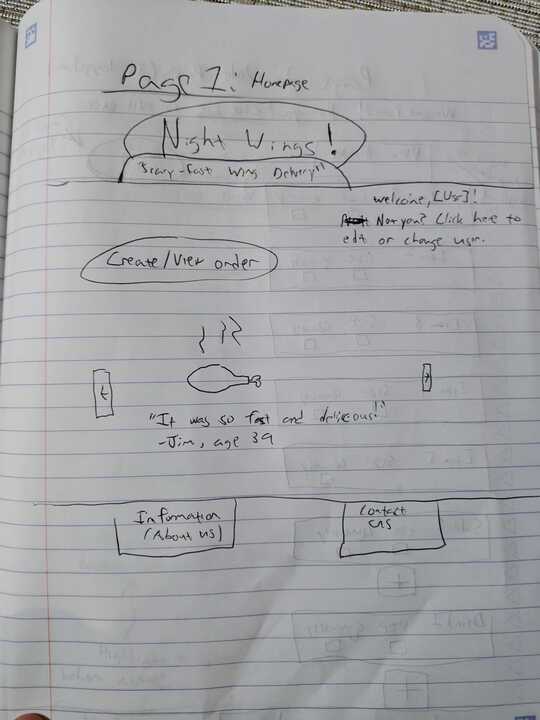 Page 1: Homepage
Night Wings!
"Scary-Fast Wing Delivery"
welcome, [User]!
Not you? Click here to
edit or change user.
Create/View order
"It was so fast and delicous!"
-Jim, age 39
Information
(About us)
Contact
us